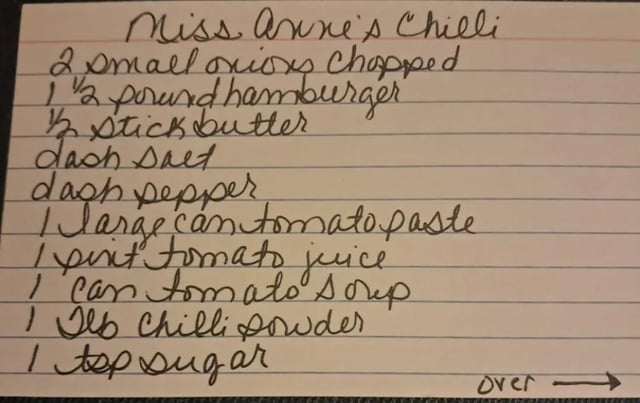 Miss Anne's Chilli
2 small onions chopped
1 1/2 pound hamburger
1/2 stick butter
dash salt
dash pepper
1 large can tomato paste
1 pint tomato juice
1 can tomato soup
1 Tlb chilli powder
1 tsp sugar
over →